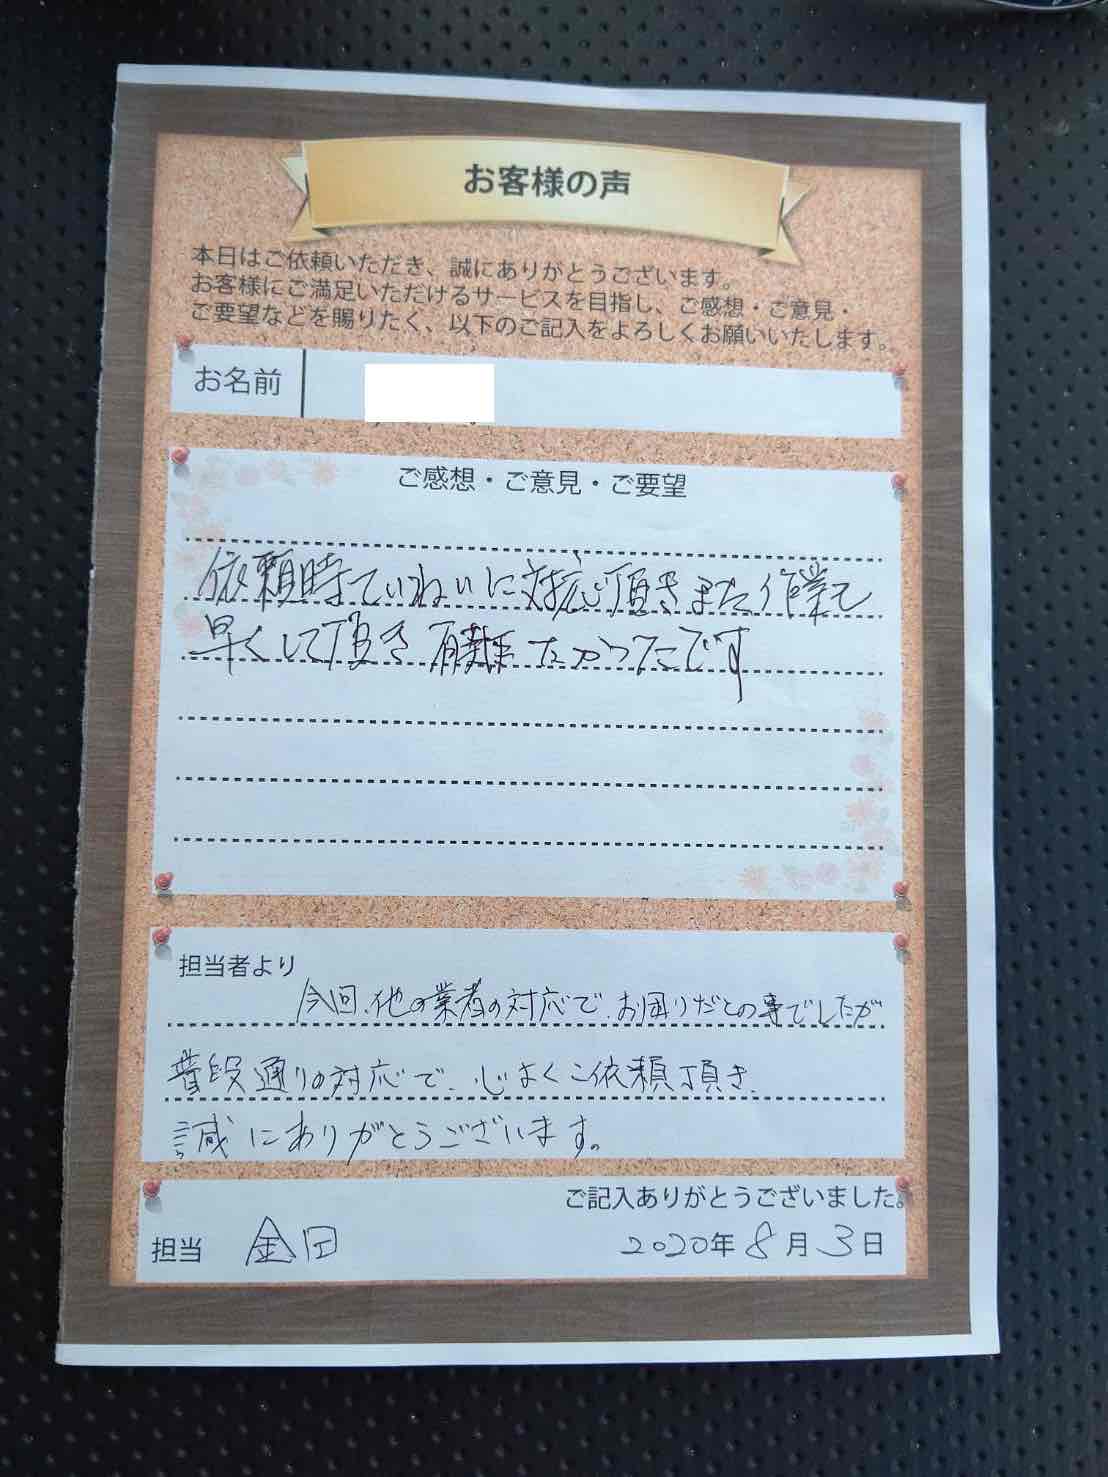 お客様の声
本日はご依頼いただき、誠にありがとうございます。
お客様にご満足いただけるサービスを目指し、ご感想・ご意見・
ご要望などを賜りたく、以下のご記入をよろしくお願いいたします。
お名前
ご感想・ご意見・ご要望
依頼時ていねいに対応頂きまた作業も
早くして頂き有難たかったです
担当者より
今回、他の業者の対応で、お困りだとの事でしたが
普段通りの対応で、心よくご依頼頂き、
誠にありがとうございます。
ご記入ありがとうございました。
担当 金田
2020年8月3日